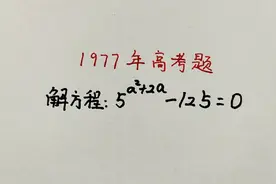 1977年高考题
解方程: 5^{a²+2a} -125=0